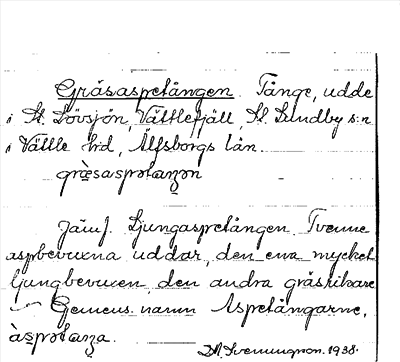 Gräsaspetången. Tånge, udde
i St. Lövsjön, Vättlefjäll, St. Lundby s:n
i Vättle hd, Älfsborgs län.
gräsaspətaŋən
Jämf. Ljungaspetången. Tvenne
aspbevuxna uddar, den ena mycket
ljungbevuxen, den andra gräsrikare
Gemens. namn Aspetångarne,
àspətaŋa.
Hj. Svenungson. 1938.